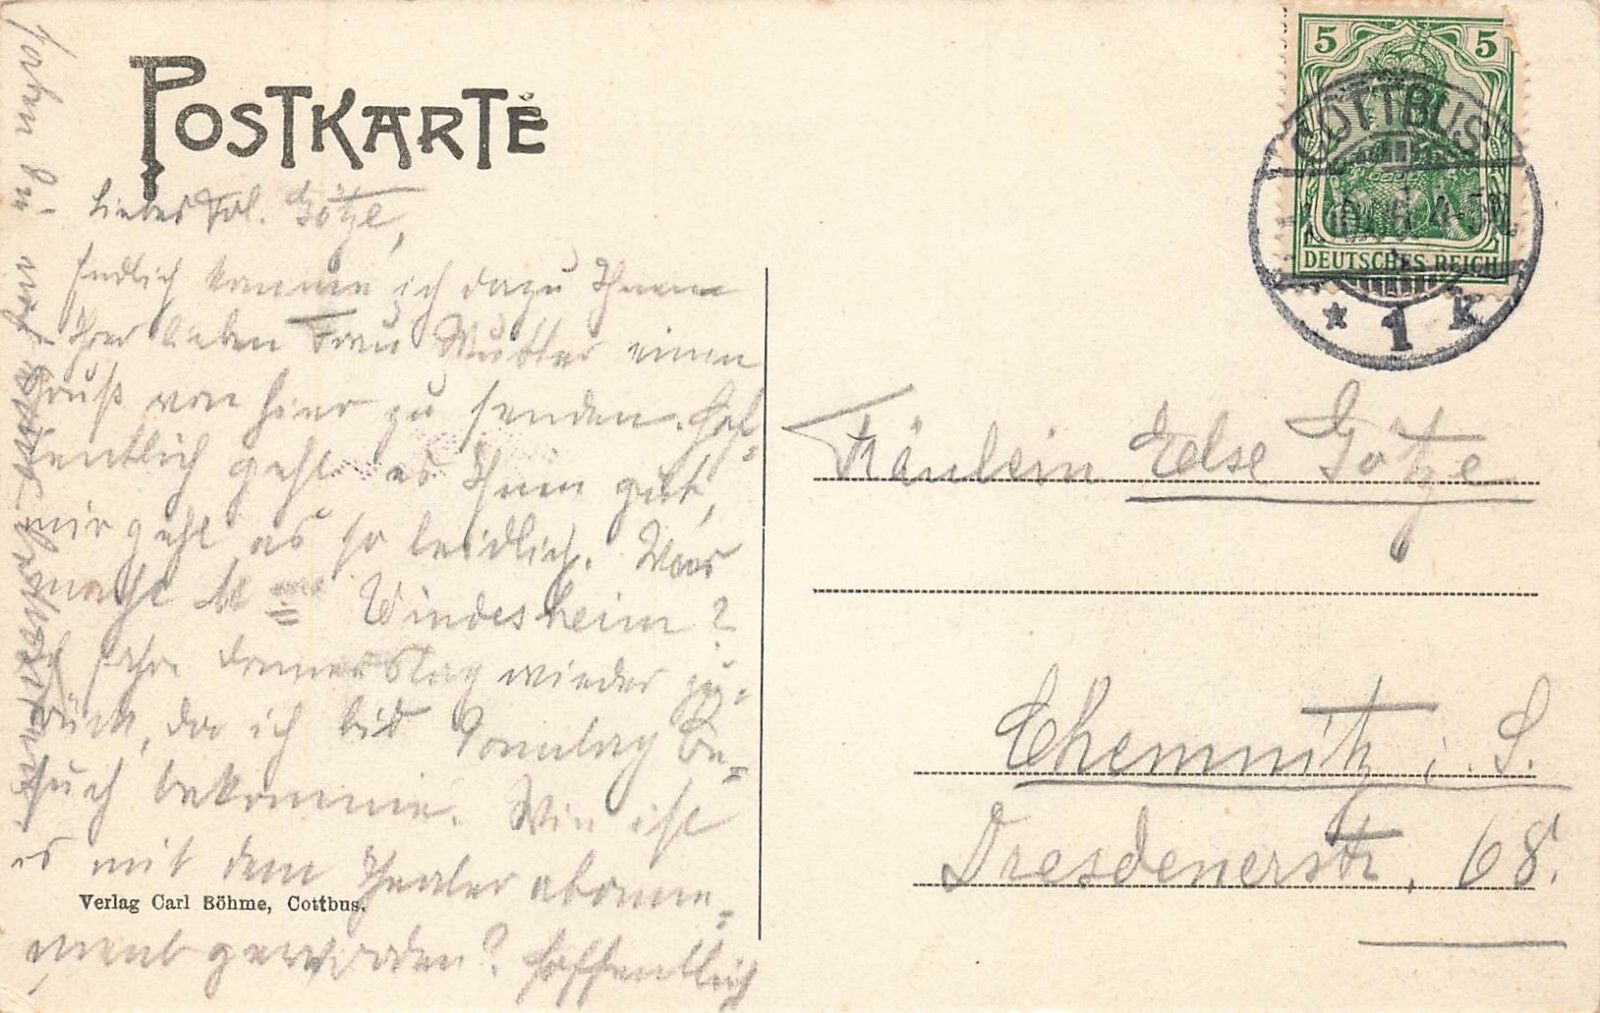 POSTKARTE
5 5
COTTBUS
4-5N
DEUTSCHES REICH
* 1 K
Liebes Frl. Götze,
Endlich komme ich dazu Ihnen
Ihrer lieben Frau Mutter einen
Gruß von hier zu senden. Hof-
fentlich geht es Ihnen gut,
mir geht es so leidlich. Was
macht Windesheim?
Ich fahre donnerstag wieder zu-
rück, da ich bis Sonntag Be-
such bekomme. Wie ist
es mit dem Theater abonne-
ment geworden? Hoffentlich
Fräulein Else Götze
Chemnitz i. S.
Dresdenerstr. 68.
Verlag Carl Böhme, Cottbus.